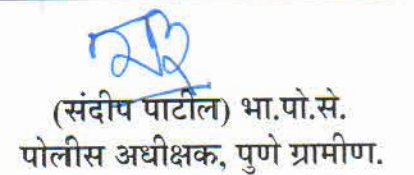 (संदीप पाटील) भा.पो.से.
पोलीस अधीक्षक, पुणे ग्रामीण.